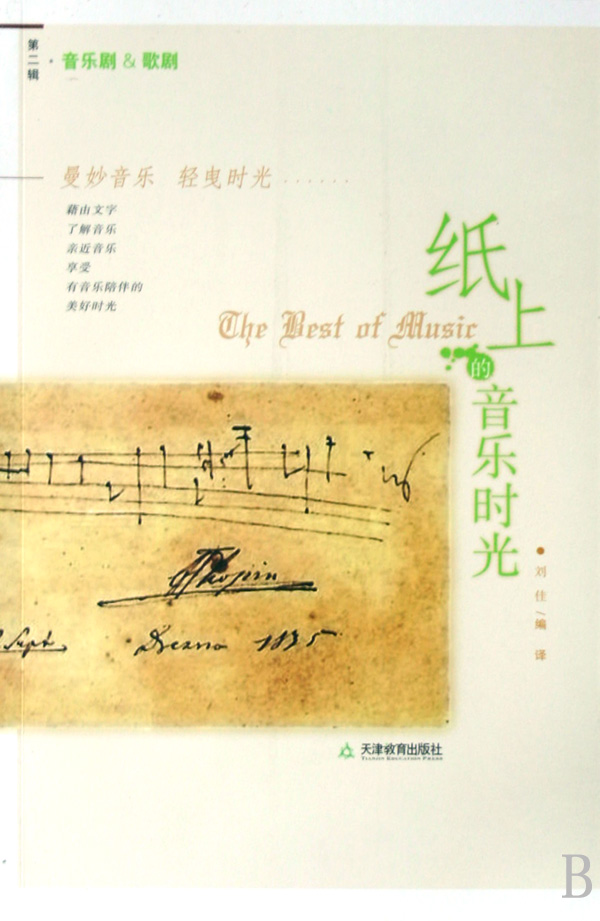 第二辑
音乐剧 & 歌剧
曼妙音乐 轻曳时光······
藉由文字
了解音乐
亲近音乐
享受
有音乐陪伴的
美好时光
纸上的音乐时光
The Best of Music
刘佳/编译
Chopin
Sept.
Dresno 1835
天津教育出版社
TIANJIN EDUCATION PRESS
B